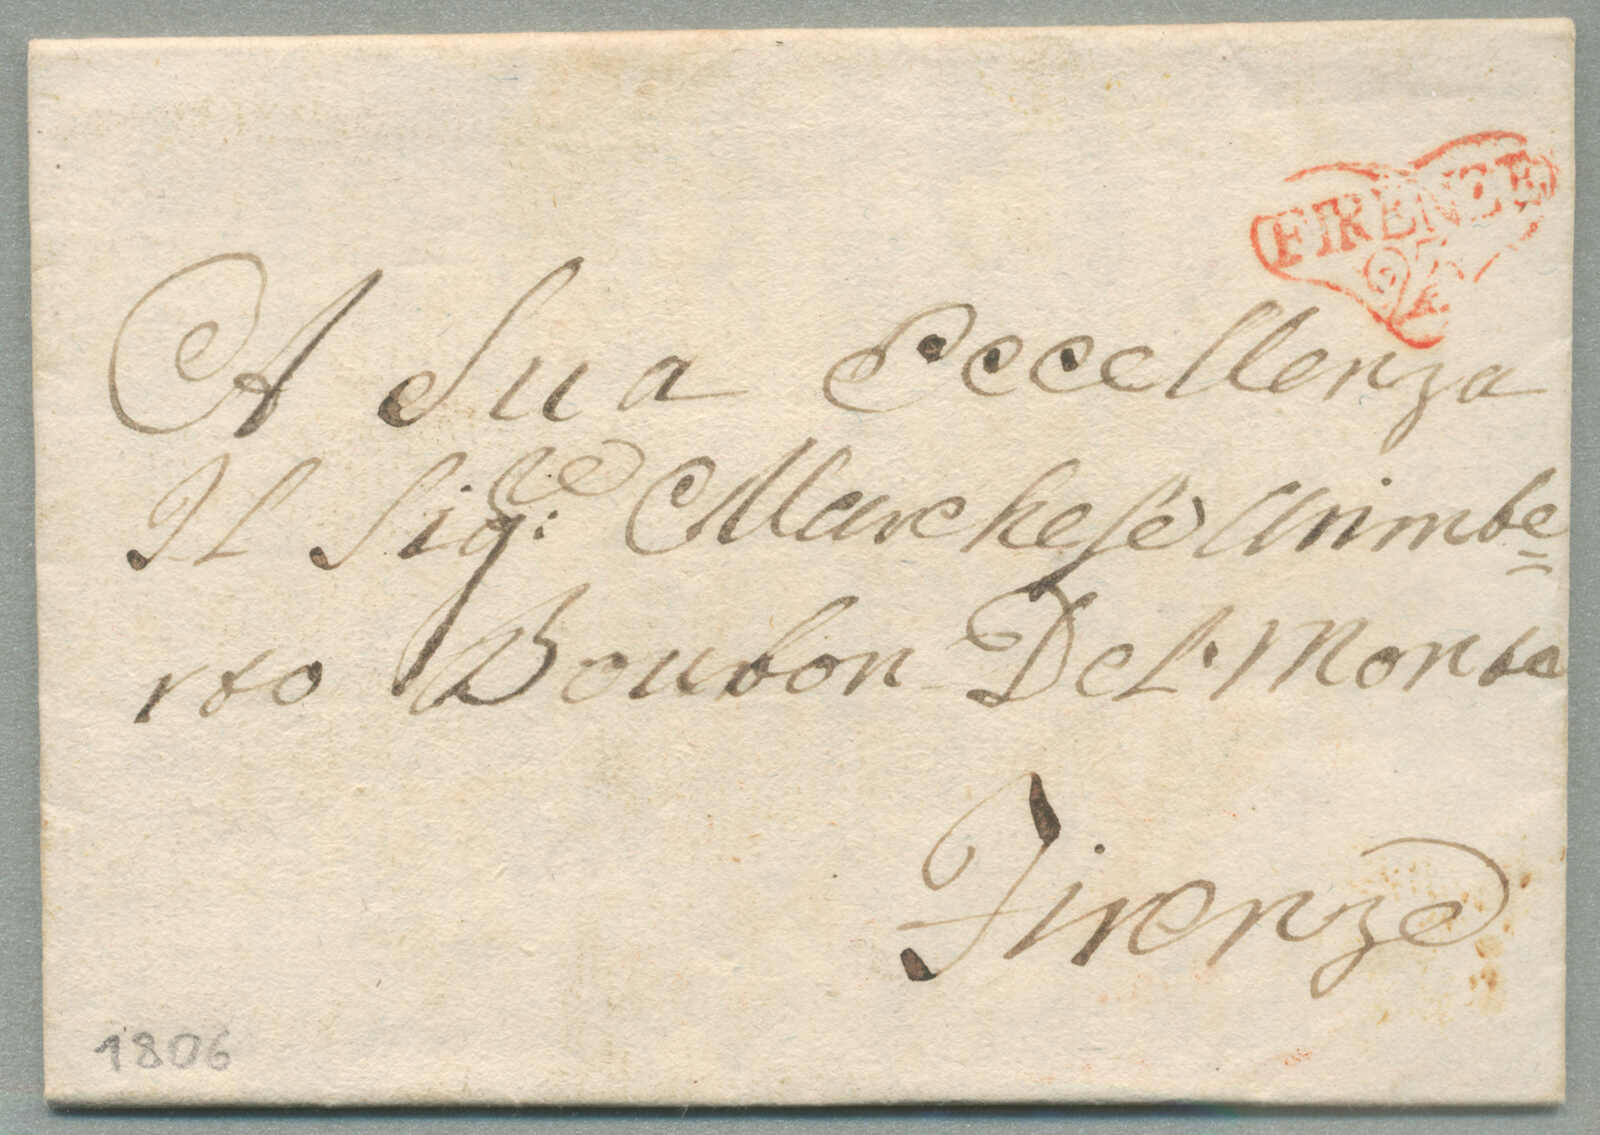 FIRENZE
A Sua Eccellenza
Il Sig.re Marchese Urimbe=
rto Bourbon Del Monte
Firenze
1806